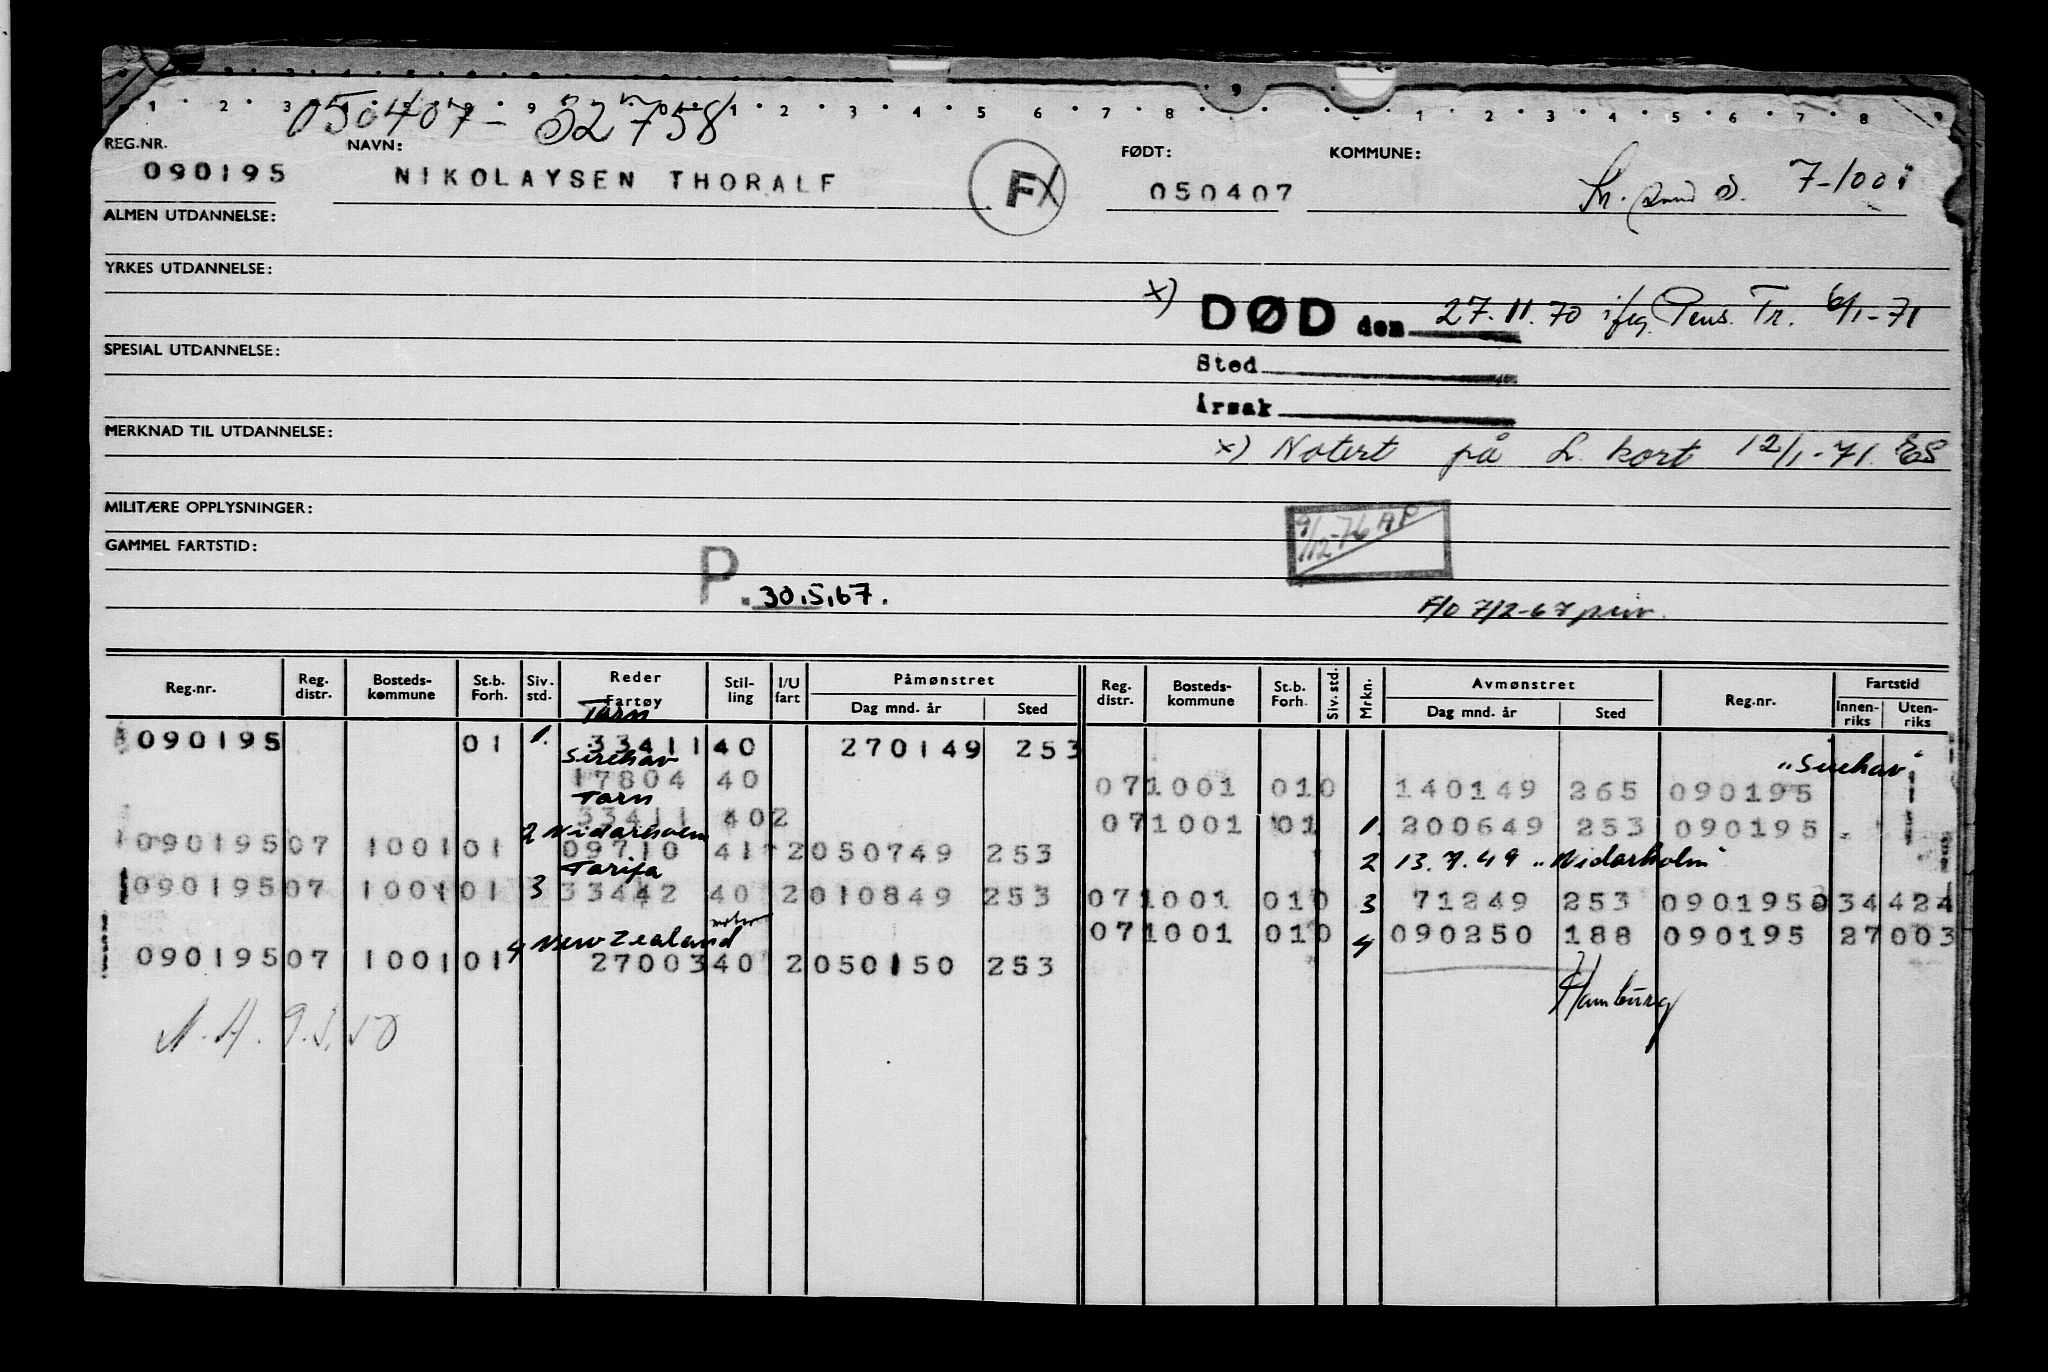 1 2 3 9 1 2 3 4 5 6 7 8 9 1 2 3 4 5 6 7 8
050407-32758
REG.NR. NAVN: FØDT: KOMMUNE:
090195 NIKOLAYSEN THORALF FX 050407 Kr.sand S. 7-1001
ALMEN UTDANNELSE:
YRKES UTDANNELSE:
x) DØD den 27.11.70 ifg. Pens. Tr. 6/1-71
SPESIAL UTDANNELSE: Sted
Årsak
MERKNAD TIL UTDANNELSE: x) Notert på L. kort 12/1-71. ES
MILITÆRE OPPLYSNINGER: 9/12-76 AP
GAMMEL FARTSTID:
P. 30.5.67.
F/O 7/2-67
Reg.nr. Reg. distr. Bosteds-kommune St.b. Forh. Siv. std. Reder Fartøy Stil-ling I/U fart Påmønstret Dag mnd. år Sted Reg. distr. Bosteds-kommune St.b. Forh. Siv. std. Mrkn. Avmønstret Dag mnd. år Sted Reg.nr. Fartstid Innen-riks Uten-riks
Tarn
090195 01 1. 33411 40 270149 253
Sirehav "Sirehav"
17804 40 07 1001 010 140149 265 090195
Tarn
33411 402 07 1001 01 1. 200649 253 090195
2 Nidarholm
090195 07 1001 01 09710 41 2 050749 253 2 13.7.49 "Nidarholm"
Tarifa
090195 07 1001 01 3 33442 40 2 010849 253 07 1001 010 3 71249 253 090195 0 34424
4 New Zealand 07 1001 010 4 090250 188 090195 27003
090195 07 1001 01 27003 40 2 050150 253
Hamburg